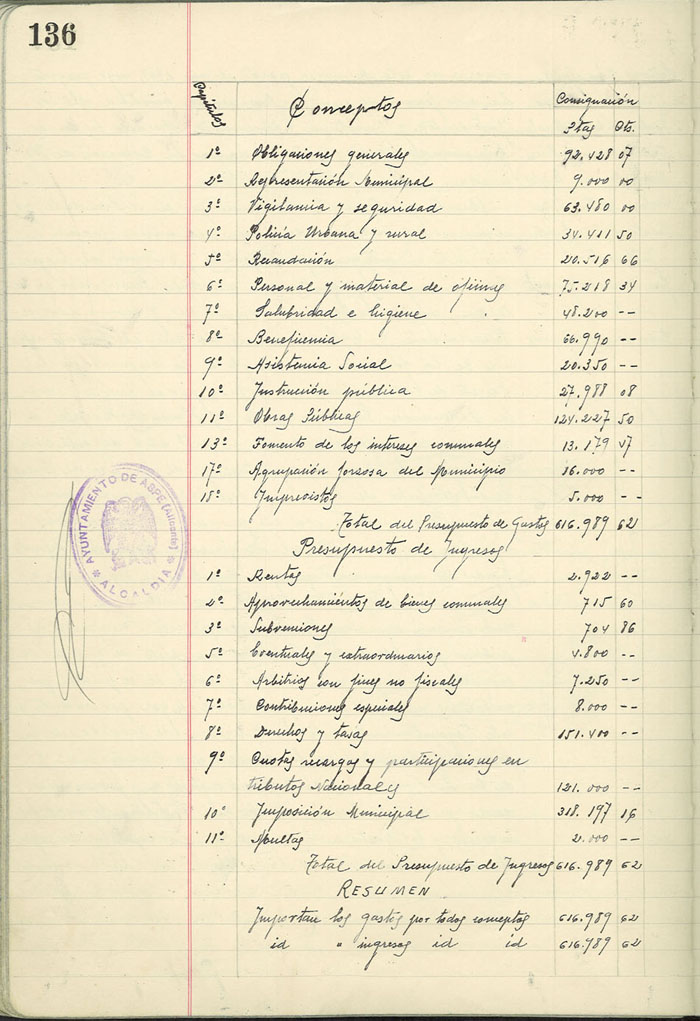 136
Capítulos Conceptos Consignación
Ptas Cts.
1º Obligaciones generales 92.428 07
2º Representación Municipal 9.000 00
3º Vigilancia y seguridad 63.480 00
4º Policía Urbana y rural 34.411 50
5º Recaudación 20.516 66
6º Personal y material de oficinas 75.218 34
7º Salubridad e higiene 48.200 --
8º Beneficencia 66.990 --
9º Asistencia Social 20.350 --
10º Instrucción pública 27.988 08
11º Obras Públicas 124.227 50
13º Fomento de los intereses comunales 13.179 47
17º Agrupación forzosa del Municipio 16.000 --
18º Imprevistos 5.000 --
Total del Presupuesto de Gastos 616.989 62
Presupuesto de Ingresos
1º Rentas 2.922 --
2º Aprovechamientos de bienes comunales 715 60
3º Subvenciones 704 86
5º Eventuales y extraordinarios 4.800 --
6º Arbitrios con fines no fiscales 7.250 --
7º Contribuciones especiales 8.000 --
8º Derechos y tasas 151.400 --
9º Cuotas recargos y participaciones en
tributos Nacionales 121.000 --
10º Imposición Municipal 318.197 16
11º Multas 2.000 --
Total del Presupuesto de Ingresos 616.989 62
RESUMEN
Importan los gastos por todos conceptos 616.989 62
id " ingresos id id 616.989 62
AYUNTAMIENTO DE ASPE (Alicante)
* ALCALDÍA *